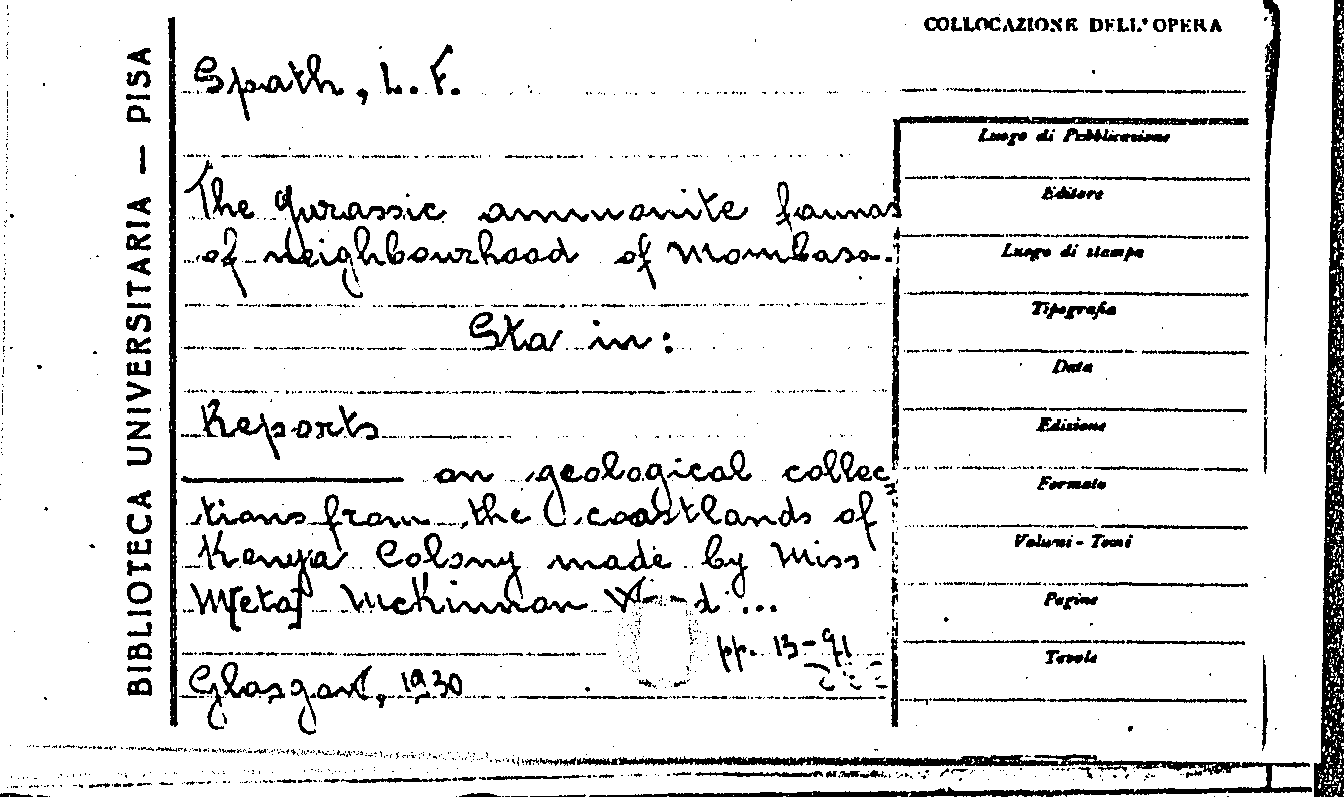 COLLOCAZIONE DELL'OPERA
BIBLIOTECA UNIVERSITARIA — PISA
Spath, L. F.
The Jurassic ammonite faunas
of neighbourhood of Mombasa.
Sta in:
Reports
on geological collec
tions from the coastlands of
Kenya Colony made by Miss
M[eta] McKinnon ...
pp. 13-91
Glasgow, 1930
Luogo di Pubblicazione
Editore
Luogo di stampa
Tipografia
Data
Edizione
Formato
Volumi - Tomi
Pagine
Tavole